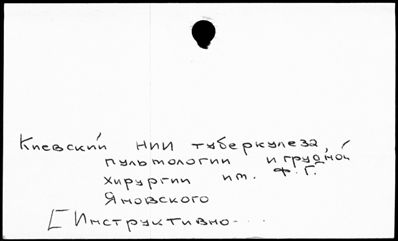 Киевский НИИ туберкулеза,
пультологии и грудной
хирургии им. Ф.Г.
Яновского
[Инструктивно...